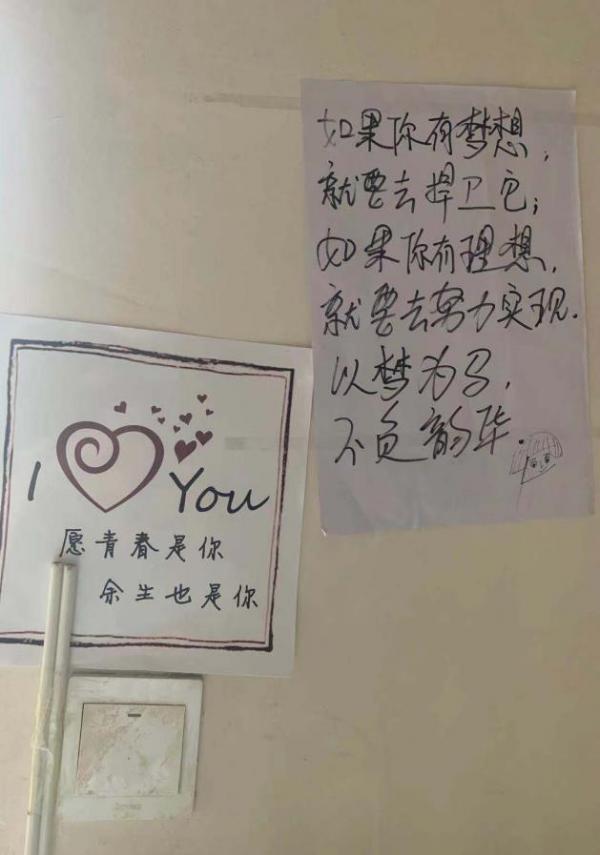 如果你有梦想，
就要去捍卫它；
如果你有理想，
就要去努力实现.
以梦为马，
不负韵华.
I You
愿青春是你
余生也是你